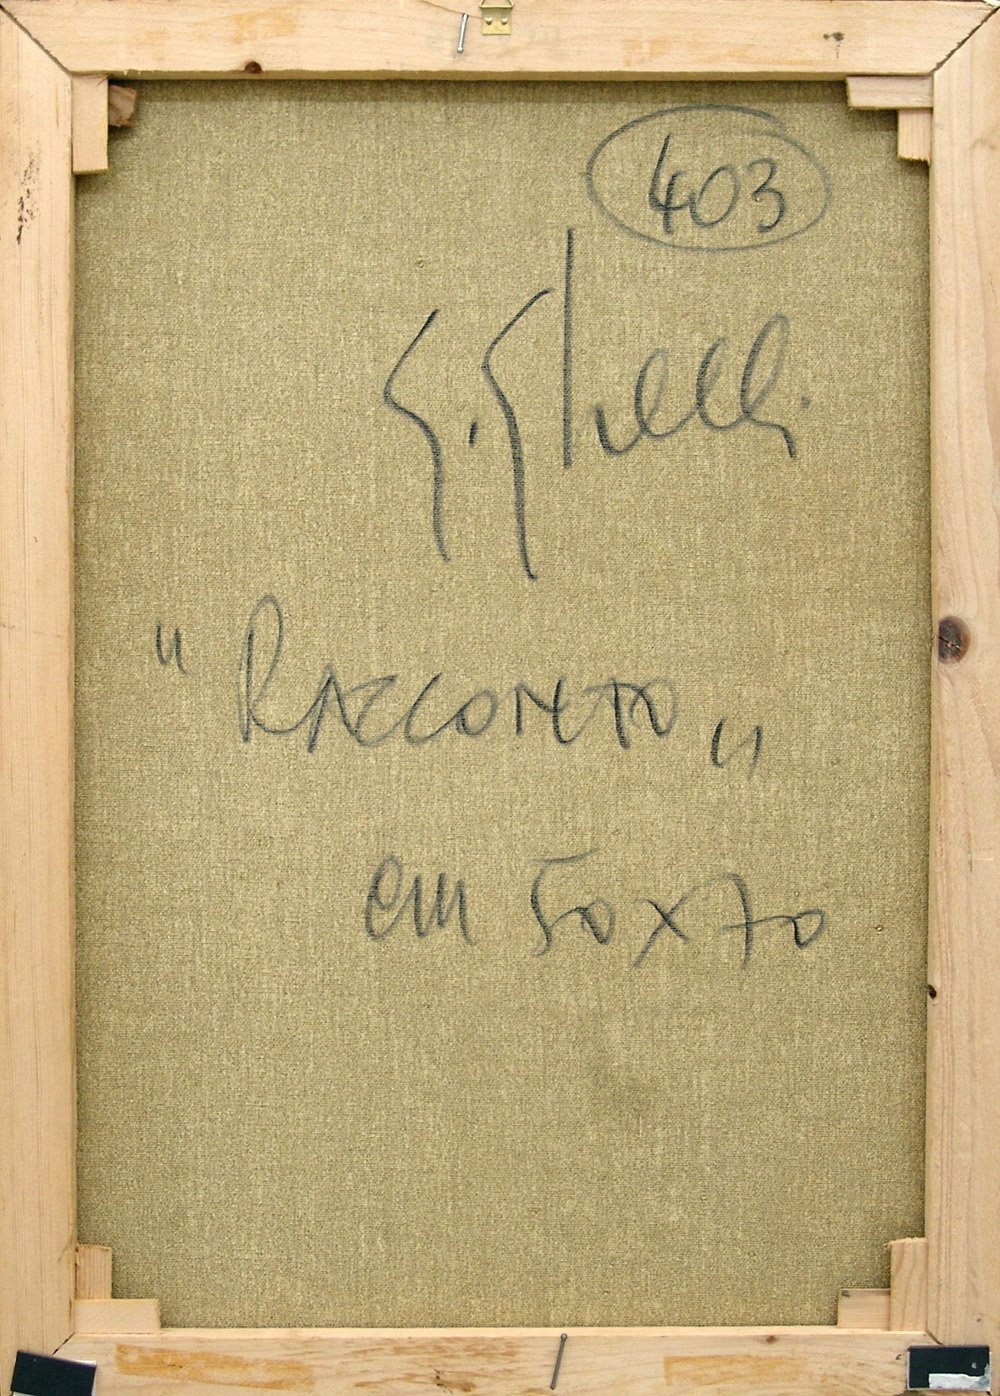 403
" RACCONTO "
cm 50x70